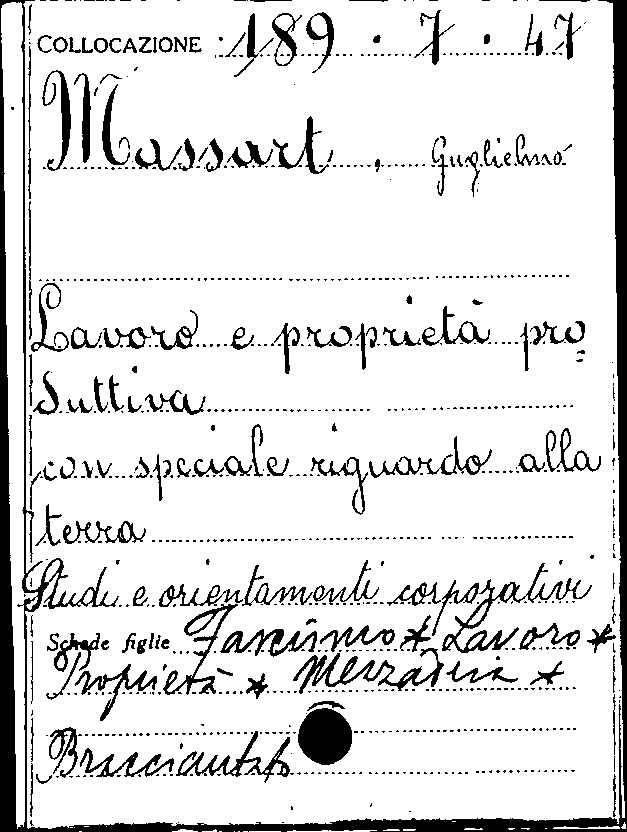 COLLOCAZIONE 189 . 7 . 47
Massart, Guglielmo
Lavoro e proprietà pro=
duttiva
con speciale riguardo alla
terra
Studi e orientamenti corporativi
Schede figlie Fascismo * Lavoro *
Proprietà * Mezzadria *
Bracciantato